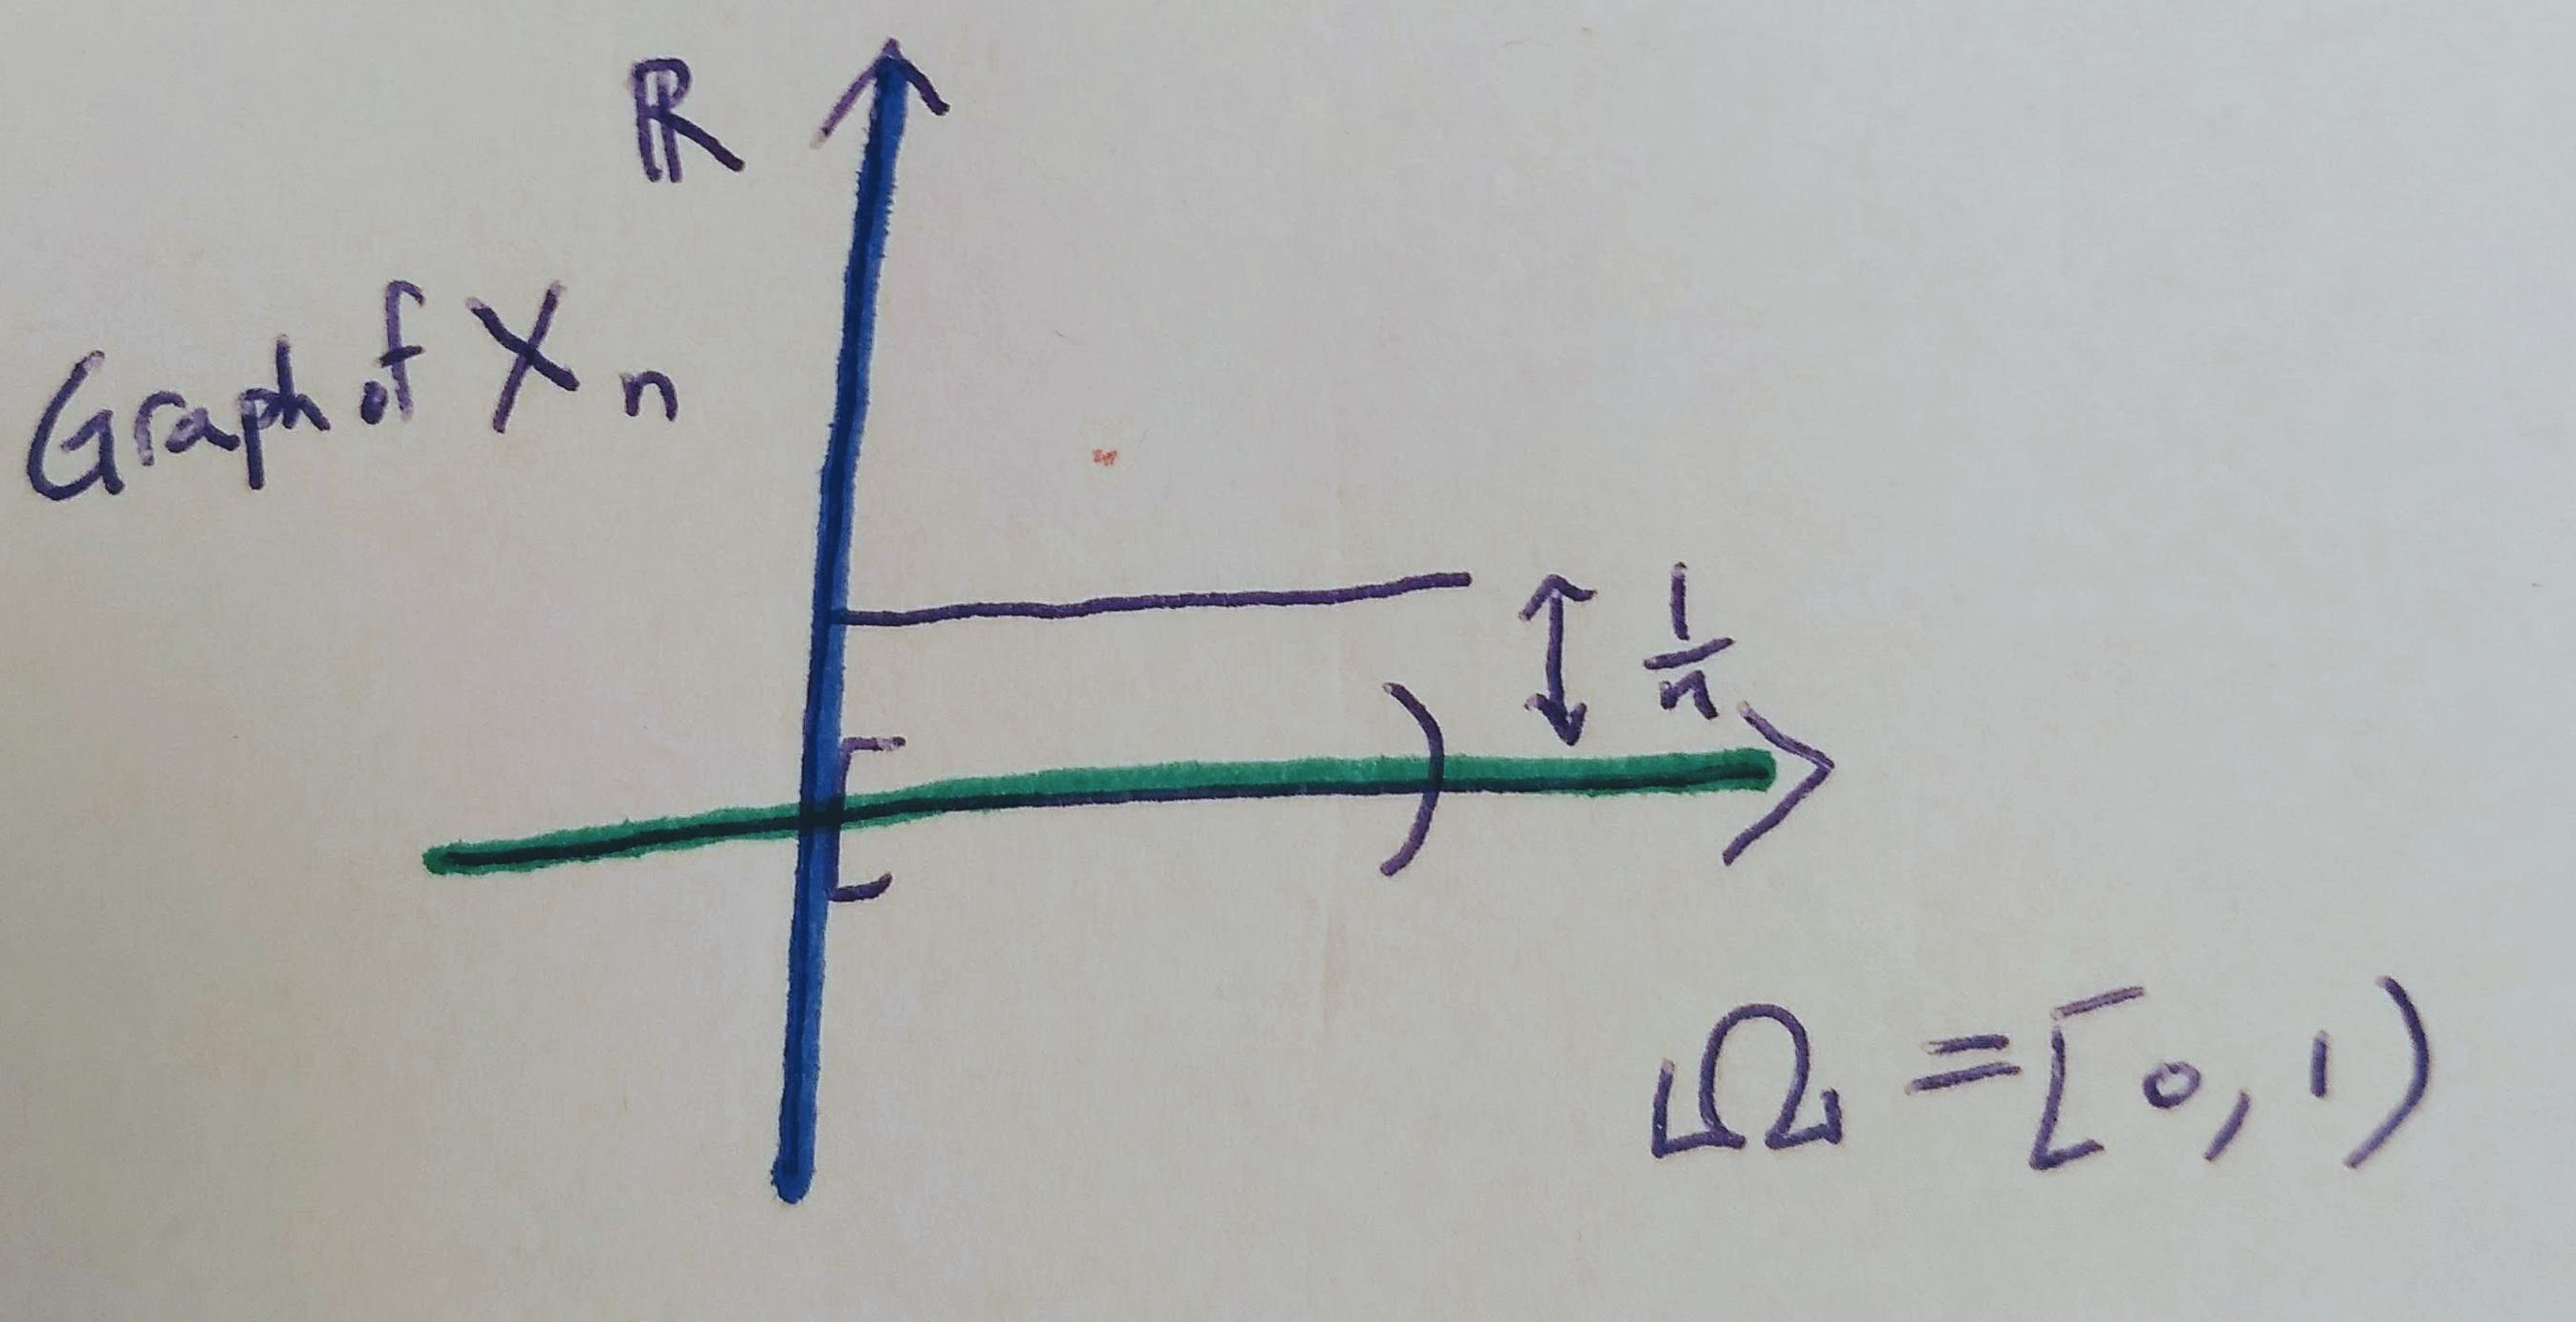 ℝ
Graph of Xₙ
1/n
Ω = [0, 1)